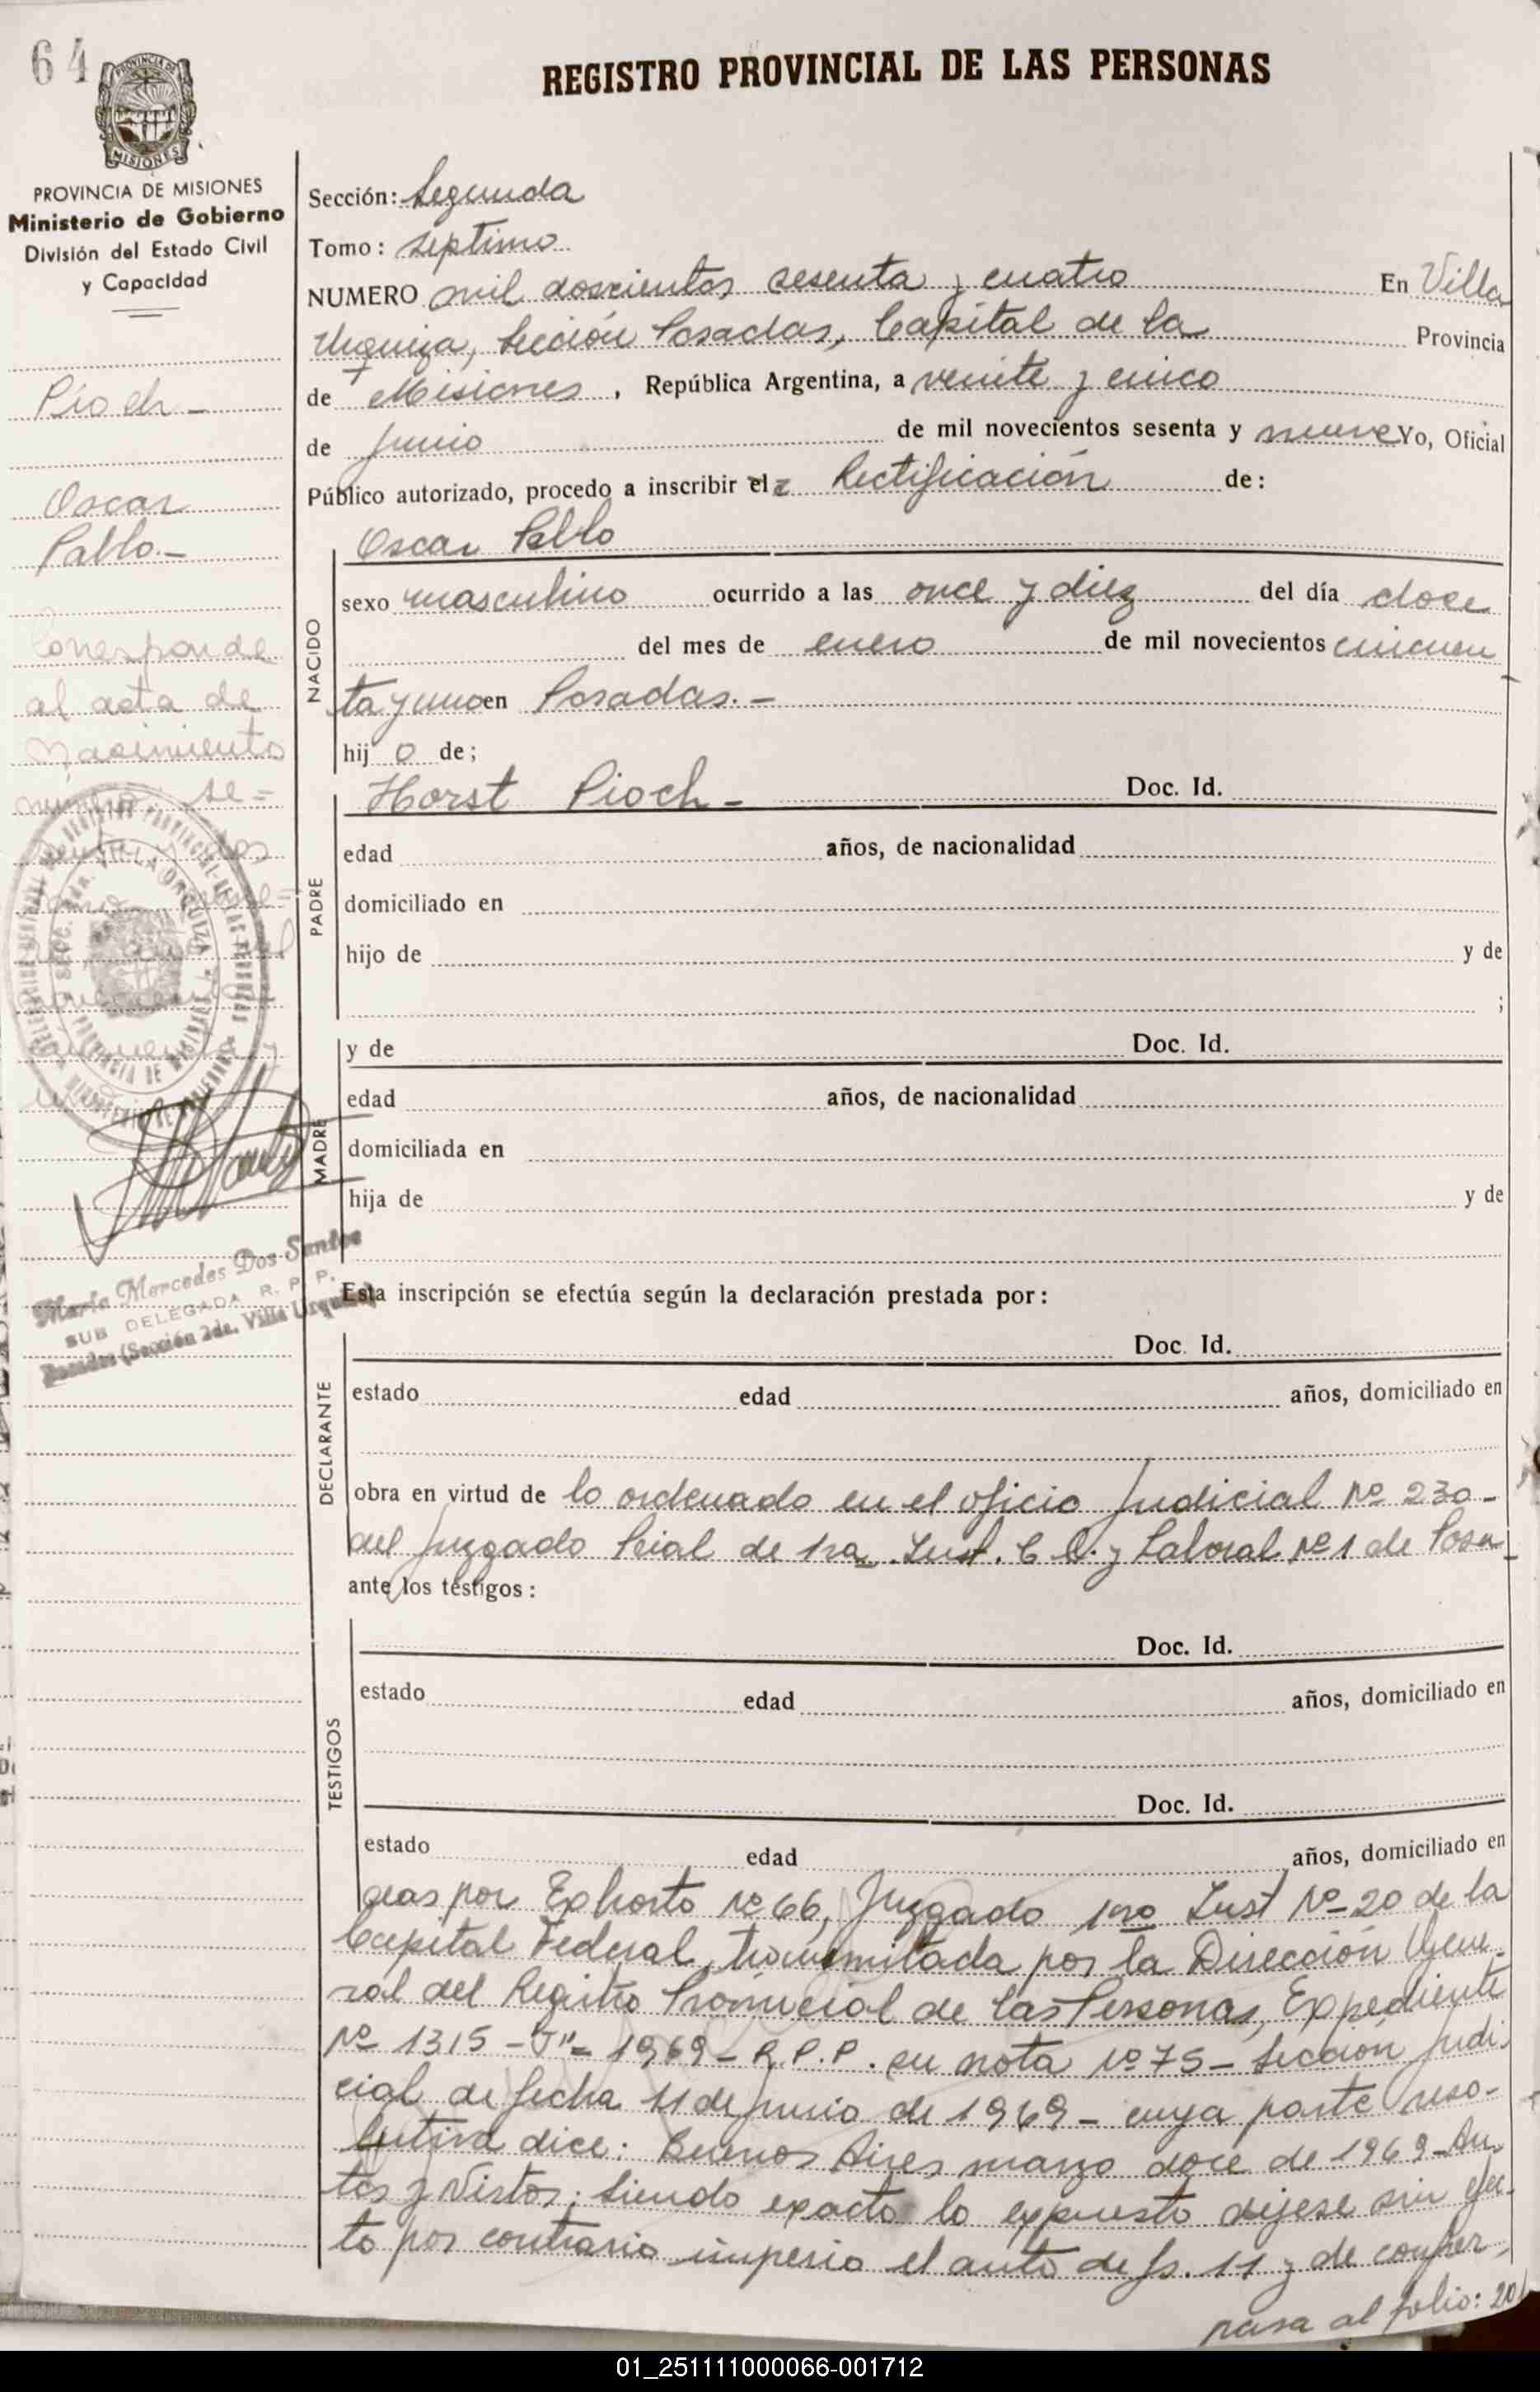 64
PROVINCIA DE
MISIONES
REGISTRO PROVINCIAL DE LAS PERSONAS
PROVINCIA DE MISIONES
Ministerio de Gobierno
División del Estado Civil
y Capacidad
Pioch -
Oscar
Pablo.-
Corresponde
al acta de
nacimiento
número se=
María Mercedes Dos Santos
SUB DELEGADA R. P. P.
Posadas (Sección 2da. Villa Urquiza)
Sección: Segunda
Tomo: septimo
NUMERO mil doscientos sesenta y cuatro En Villa
Urquiza, Sección Posadas, Capital de la Provincia
de Misiones, República Argentina, a veinte y cinco
de junio de mil novecientos sesenta y nueve Yo, Oficial
Público autorizado, procedo a inscribir el Rectificación de:
Oscar Pablo
NACIDO
sexo masculino ocurrido a las once y diez del día doce
del mes de enero de mil novecientos cincuen
ta y uno en Posadas.-
hij o de;
PADRE
Horst Pioch - Doc. Id.
edad años, de nacionalidad
domiciliado en
hijo de y de
;
MADRE
y de Doc. Id.
edad años, de nacionalidad
domiciliada en
hija de y de
Esta inscripción se efectúa según la declaración prestada por:
DECLARANTE
Doc. Id.
estado edad años, domiciliado en
obra en virtud de lo ordenado en el oficio Judicial Nº 230-
del Juzgado de 1ra. Inst. C. C. y Laboral Nº 1 de Posa
ante los testigos:
TESTIGOS
Doc. Id.
estado edad años, domiciliado en
Doc. Id.
estado edad años, domiciliado en
das por Exhorto Nº 66, Juzgado 1ra Inst Nº 20 de la
Capital Federal, por la Dirección Gene-
ral del Registro Provincial de las Personas, Expediente
Nº 1315 - J"- 1969 - R. P. P. en nota Nº 75 - Sección Judi
cial de fecha 11 de junio de 1969 - cuya parte reso-
lutiva dice: Buenos Aires marzo doce de 1969 - Au
tos y Vistos; Siendo exacto lo expuesto déjese sin efec-
to por contrario imperio el auto de fs. 11 y de confor-
pasa al folio: 20
01_251111000066-001712